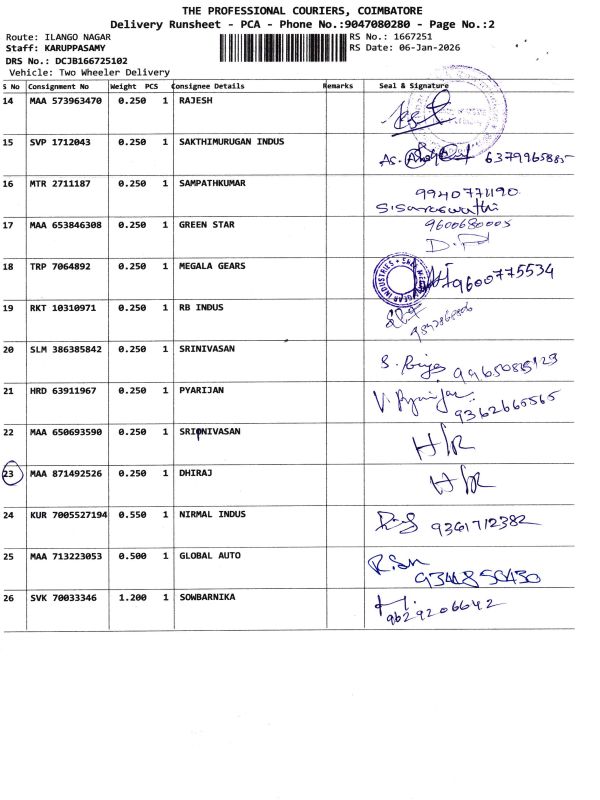 THE PROFESSIONAL COURIERS, COIMBATORE
Delivery Runsheet - PCA - Phone No.:9047080280 - Page No.:2
Route: ILANGO NAGAR RS No.: 1667251
Staff: KARUPPASAMY RS Date: 06-Jan-2026
DRS No.: DCJB166725102
Vehicle: Two Wheeler Delivery
S No Consignment No Weight PCS Consignee Details Remarks Seal & Signature
14 MAA 573963470 0.250 1 RAJESH
15 SVP 1712043 0.250 1 SAKTHIMURUGAN INDUS
16 MTR 2711187 0.250 1 SAMPATHKUMAR 9940771190
S.Saraswathi
17 MAA 653846308 0.250 1 GREEN STAR 9600680005
18 TRP 7064892 0.250 1 MEGALA GEARS 9600775534
19 RKT 10310971 0.250 1 RB INDUS
20 SLM 386385842 0.250 1 SRINIVASAN
21 HRD 63911967 0.250 1 PYARIJAN 9362665565
22 MAA 650693590 0.250 1 SRIONIVASAN H/R
23 MAA 871492526 0.250 1 DHIRAJ H/R
24 KUR 7005527194 0.550 1 NIRMAL INDUS 9361712382
25 MAA 713223053 0.500 1 GLOBAL AUTO
26 SVK 70033346 1.200 1 SOWBARNIKA 9629206642